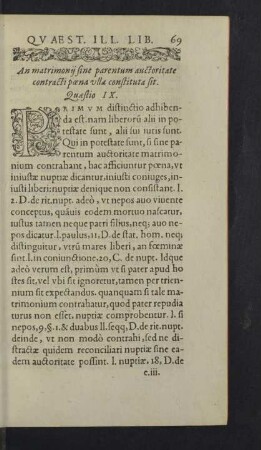 QVAEST. ILL. LIB. 69
An matrimonij sine parentum auctoritate
contracti pœna vlla constituta sit.
Quæstio IX.
PRIMVM distinctio adhiben
da est. nam liberorū alii in po
testate sunt, alii sui iuris sunt.
Qui in potestate sunt, si sine pa
rentum auctoritate matrimo
nium contrahant, hac afficiuntur pœna, vt
iniustæ nuptiæ dicantur. iniusti coniuges, in
iusti liberi: nuptiæ denique non consistant. l.
2. D. de rit. nupt. adeò, vt nepos auo viuente
conceptus, quāuis eodem mortuo nascatur,
iustus tamen neque patri filius, neq; auo ne-
pos dicatur. l. paulus. 11. D. de stat. hom. neq;
distinguitur, vtrū mares liberi, an fœminæ
sint. l. in coniunctione. 20, C. de nupt. Idque
adeò verum est, primùm vt si pater apud ho
stes sit, vel vbi sit ignoretur, tamen per trien-
nium sit expectandꝰ. quanquam si tale ma-
trimonium contrahatur, quod pater repudia
turus non esset. nuptiæ comprobentur. l. si
nepos, 9, §. 1. & duabus ll. seqq, D. de rit. nupt.
deinde, vt non modò contrahi, sed ne di-
stractæ quidem reconciliari nuptiæ sine ea-
dem auctoritate possint. l. nuptiæ, 18, D. de
e.iii.